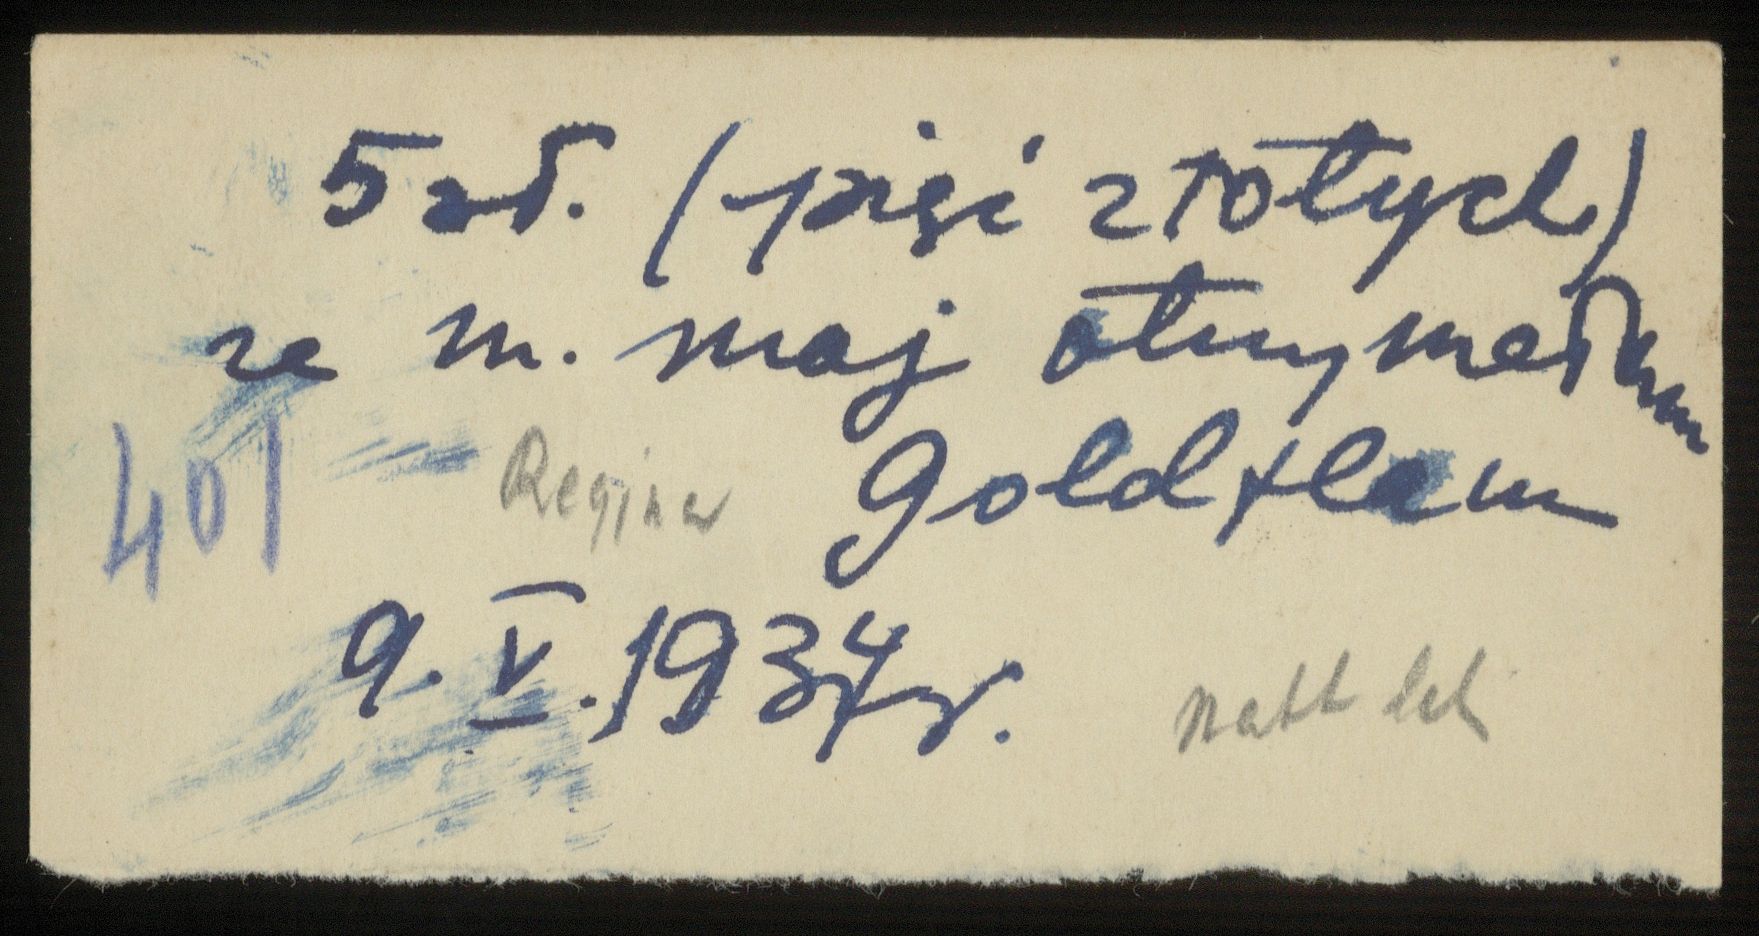 5 zł. (pięć złotych)
za m. maj otrzymałam
401 Regina Goldflam
9.V.1934 r.